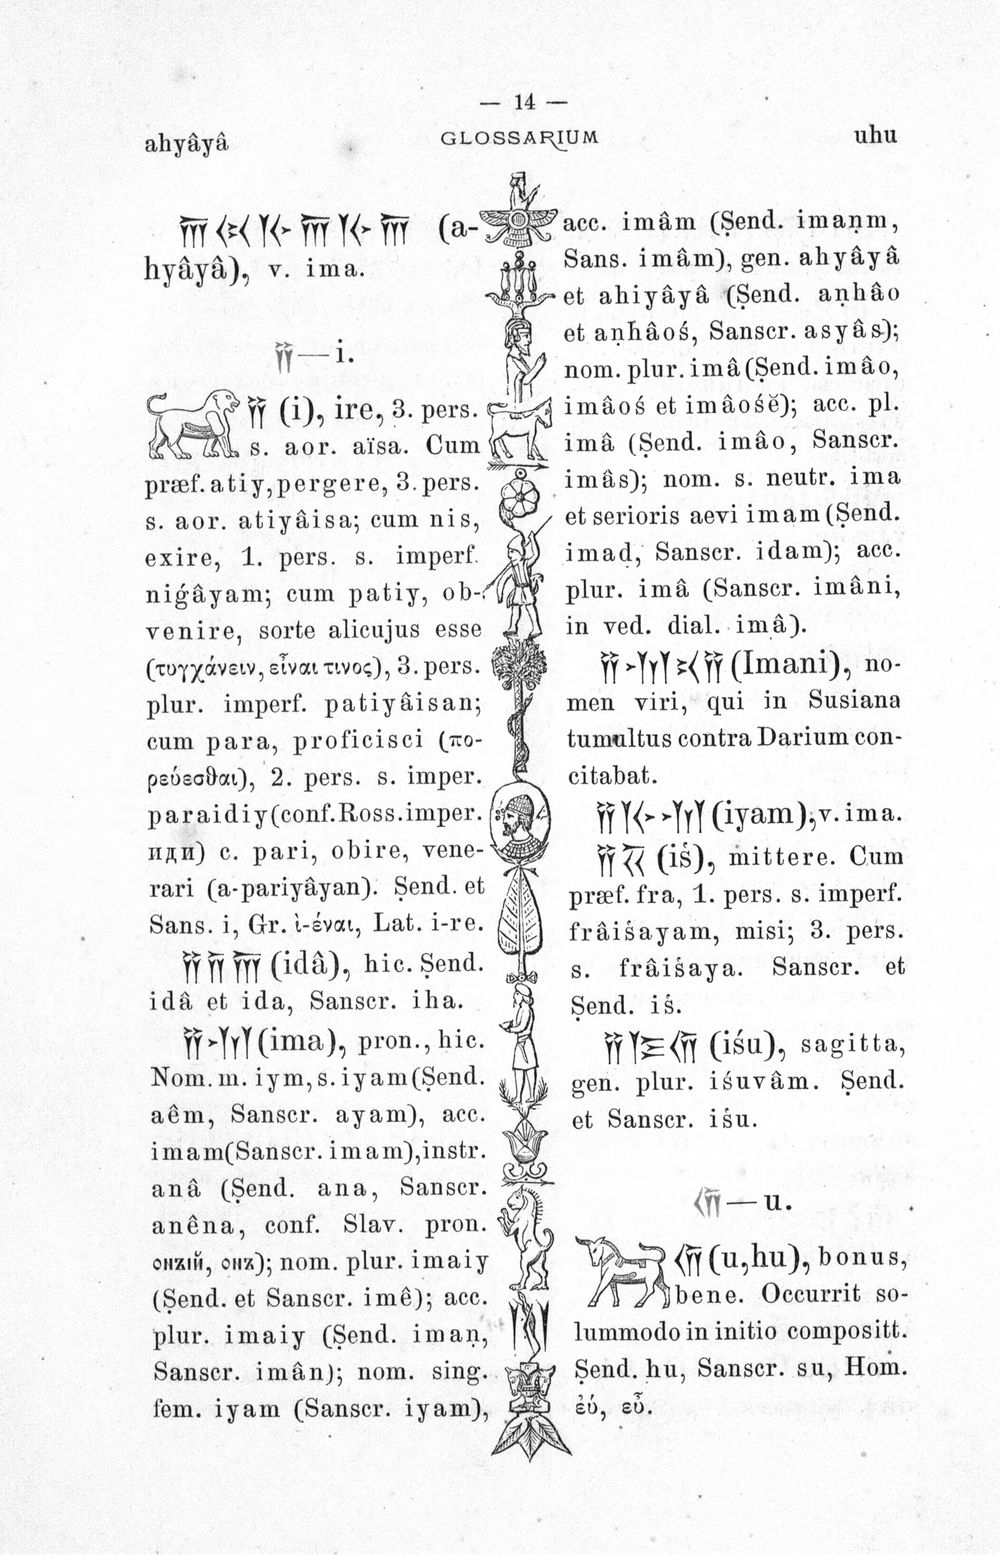 — 14 —
ahyâyâ
GLOSSARIUM
uhu
𐎠𐏃𐎹𐎠𐎹𐎠 (a-
hyâyâ), v. ima.
𐎡—i.
𐎡 (i), ire, 3. pers.
s. aor. aïsa. Cum
præf. atiy, pergere, 3. pers.
s. aor. atiyâisa; cum nis,
exire, 1. pers. s. imperf.
niǵâyam; cum patiy, ob-
venire, sorte alicujus esse
(τυγχάνειν, εἶναι τινος), 3. pers.
plur. imperf. patiyâisan;
cum para, proficisci (πο-
ρεύεσϑαι), 2. pers. s. imper.
paraidiy (conf. Ross. imper.
иди) c. pari, obire, vene-
rari (a-pariyâyan). Ṣend. et
Sans. i, Gr. ἰ-έναι, Lat. i-re.
𐎡𐎡𐎠 (idâ), hic. Ṣend.
idâ et ida, Sanscr. iha.
𐎡𐎶 (ima), pron., hic.
Nom. m. iym, s. iyam (Ṣend.
aêm, Sanscr. ayam), acc.
imam (Sanscr. imam), instr.
anâ (Ṣend. ana, Sanscr.
anêna, conf. Slav. pron.
онъій, онъ); nom. plur. imaiy
(Ṣend. et Sanscr. imê); acc.
plur. imaiy (Ṣend. imaṇ,
Sanscr. imân); nom. sing.
fem. iyam (Sanscr. iyam),
acc. imâm (Ṣend. imaṇm,
Sans. imâm), gen. ahyâyâ
et ahiyâyâ (Ṣend. aṇhâo
et aṇhâoś, Sanscr. asyâs);
nom. plur. imâ (Ṣend. imâo,
imâoś et imâośĕ); acc. pl.
imâ (Ṣend. imâo, Sanscr.
imâs); nom. s. neutr. ima
et serioris aevi imam (Ṣend.
imaḍ, Sanscr. idam); acc.
plur. imâ (Sanscr. imâni,
in ved. dial. imâ).
𐎡𐎶𐎴𐎡 (Imani), no-
men viri, qui in Susiana
tumultus contra Darium con-
citabat.
𐎡𐎹𐎶 (iyam), v. ima.
𐎡𐏁 (iś), mittere. Cum
præf. fra, 1. pers. s. imperf.
frâiśayam, misi; 3. pers.
s. frâiśaya. Sanscr. et
Ṣend. iś.
𐎡𐏁𐎢 (iśu), sagitta,
gen. plur. iśuvâm. Ṣend.
et Sanscr. iśu.
𐎢—u.
𐎢 (u, hu), bonus,
bene. Occurrit so-
lummodo in initio compositt.
Ṣend. hu, Sanscr. su, Hom.
ἐΰ, εὖ.